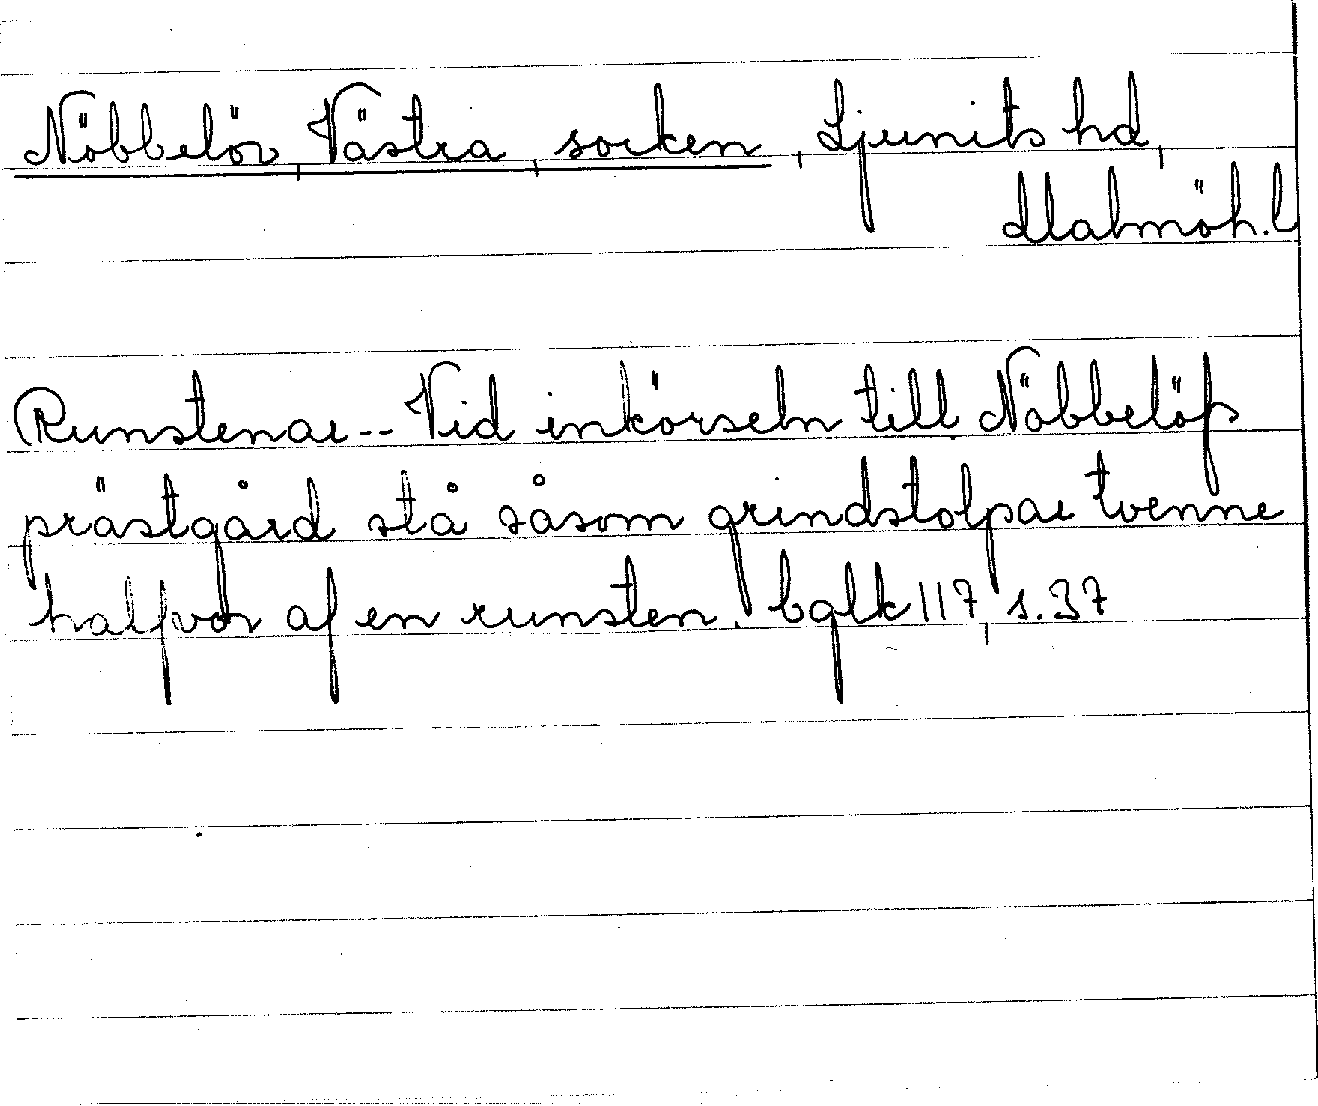 Nöbbelöv, Västra, socken, Ljunits hd,
Malmöh. l
Runstenar -- Vid inkörseln till Nöbbelöfs
prästgård stå såsom grindstolpar tvenne
halfvor af en runsten. bglk 117, s. 37